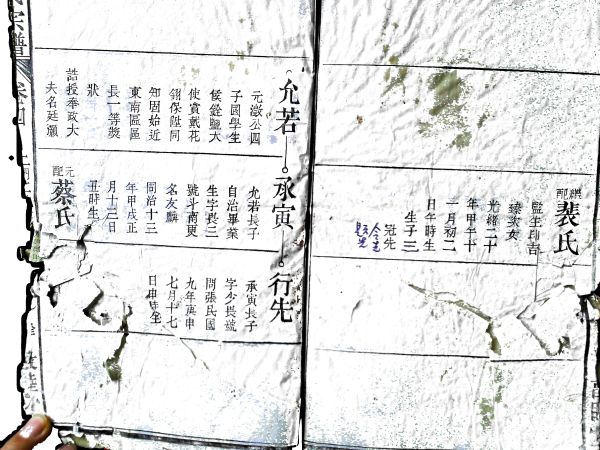 繼配裴氏
監生印吉
臻次女
光緒二十
年甲午十
一月初二
日午時生
生子三
冠先
允若
承寅
行先
元澂公四
子國學生
候銓鹽大
使賞戴花
翎保陞同
知固始近
東南區區
長一等獎
狀
誥授奉政大
夫名廷顯
允若長子
自治畢業
生字長三
號斗南更
名友麟
同治十三
年甲戌正
月十三日
丑時生
元配蔡氏
承寅長子
字少長號
問張民國
九年庚申
七月十七
日申時生
宗譜